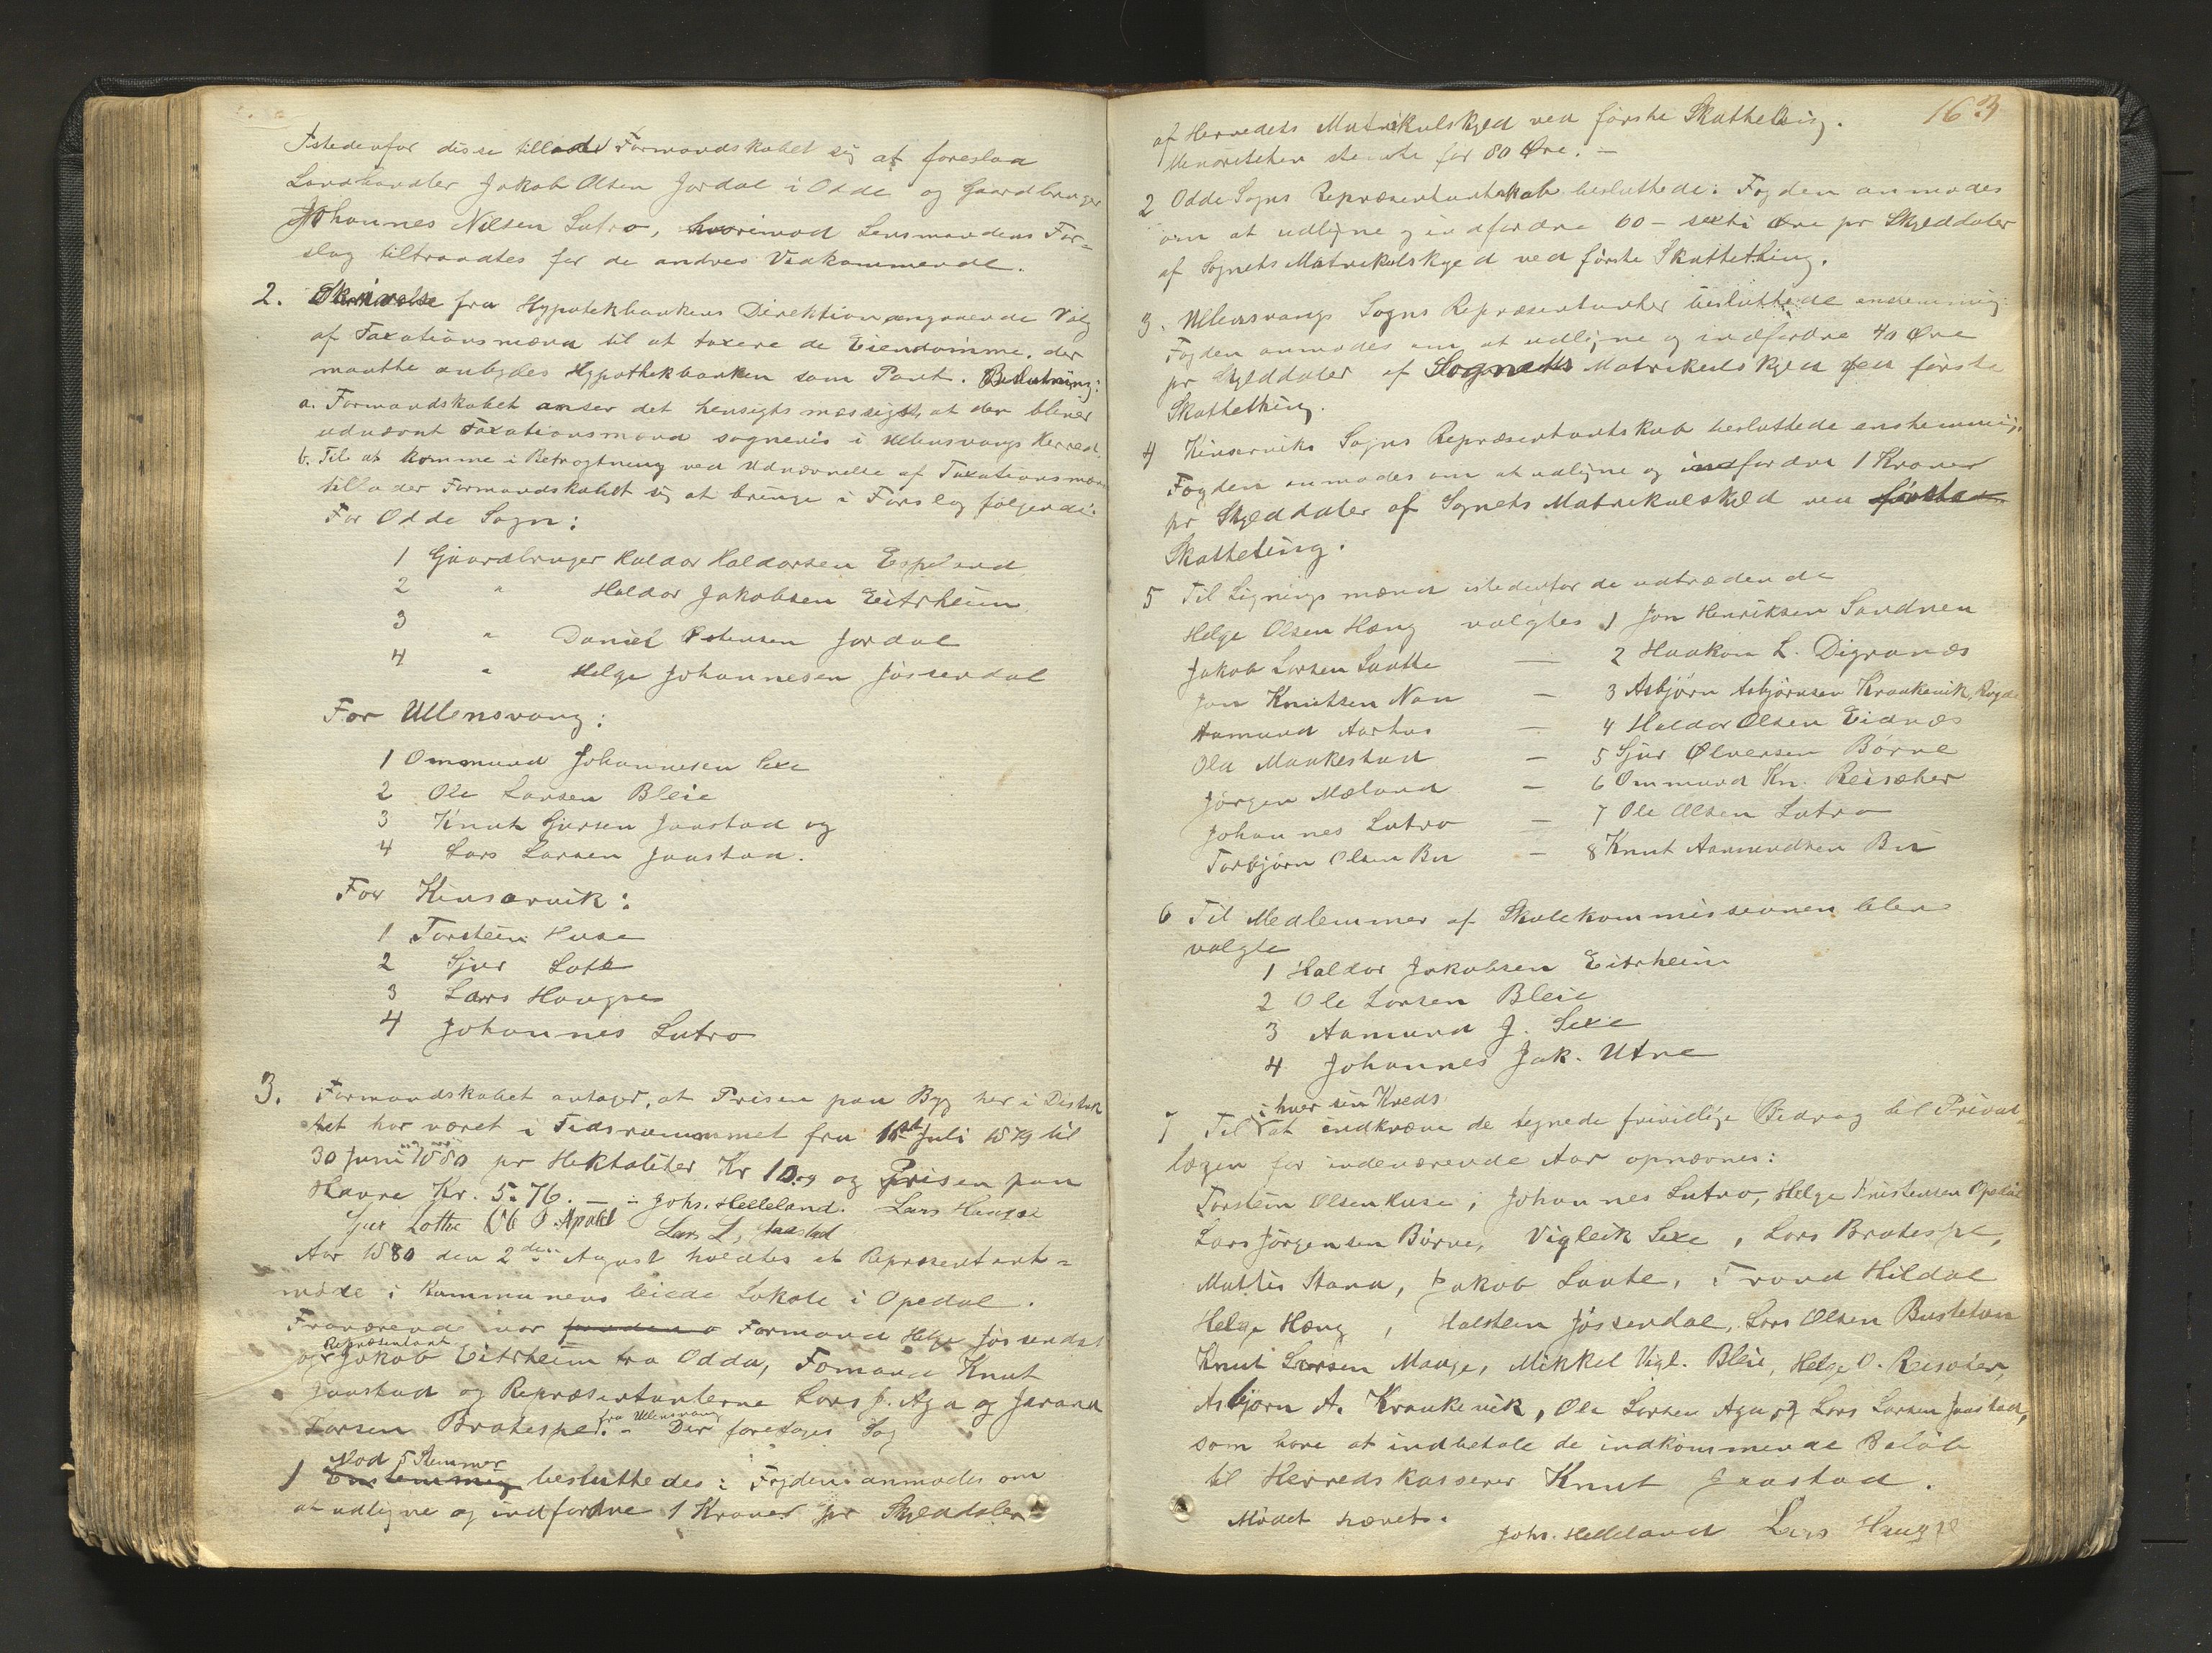 Istedenfor disse tillader Formandskabet sig at foreslaa
Landhandler Jakob Olsen Jordal i Odde og Gaardbruger
Johannes Nilsen Lutro, hvorimod Lensmandens For-
slag tiltraadtes for de andres Vedkommende.
2. Skrivelse fra Hypotekbankens Direktion angaaende Valg
af Taxationsmænd til at taxere de Eiendomme, der
maatte anbydes Hypothekbanken som Pant. Beslutning:
a. Formandskabet anser det hensigtsmæssigst, at der bliver
udnævnt Taxationsmænd sognevis i Ullensvangs Herred.
b. Til at komme i Betragtning ved Udnævnelse af Taxationsmænd
tillader Formandskabet sig at bringe i Forslag følgende:
For Odde Sogn:
1 Gaardbruger Haldor Haldorsen Espeland
2 " Haldor Jakobsen Eitrheim
3 " Daniel Østensen Jordal
4 " Helge Johannesen Jøssendal
For Ullensvang:
1 Ommund Johannesen Sexe
2 Ole Larsen Bleie
3 Knut Gjursen Jaastad og
4 Lars Larsen Jaastad.
For Kinsarvik:
1 Torstein Huse
2 Sjur Lotte
3 Lars Haugse
4 Johannes Lutro
3. Formandskabet antager, at Prisen paa Byg her i Distrik
tet har været i Tidsrummet fra 1st Juli 1879 til
30 Juni 1880 pr Hektoliter Kr 10,09 og Prisen paa
Havre Kr. 5.76. — Johs. Helleland. Lars Haugse
Sjur Lotte O Apold Lars L. Jaastad
Aar 1880 den 2den August holdtes et Repræsentant-
møde i Kommunens leiede Lokale i Opedal.
Fraværende var Formand Helge Jøssendal
og Repræsentant Jakob Eitrheim fra Odda, Fomand Knut
Jaastad og Repræsentanterne Lars J. Aga og Jarand
Larsen Bratespe fra Ullensvang. – Der foretoges Sag
1 Enstemmig Mod 5 Stemmer besluttedes: Fogden anmodes om
at udligne og indfordre 1 Krone pr Skylddaler
163
af Herredets Matrikulskyld ved første Skatteting.
Minoriteten stemte for 80 Øre. –
2 Odde Sogns Repræsentantskab besluttede: Fogden anmodes
om at udligne og indfordre 60 – sexti Øre pr Skylddaler
af Sognets Matrikulskyld ved første Skattething.
3. Ullensvangs Sogns Repræsentanter besluttede enstemmig:
Fogden anmodes om at udligne og indfordre 40 Øre
pr Skylddaler af Sognets Matrikulskyld ved første
Skattething.
4 Kinserviks Sogns Repræsentantskab besluttede enstemmig:
Fogden anmodes om at udligne og indfordre 1 Krone
pr Skylddaler af Sognets Matrikulskyld ved første
Skatteting.
5 Til Ligningsmænd istedenfor de udtrædende
Helge Olsen Hæng valgtes 1 Jon Henriksen Sandnen
Jakob Larsen Laatte — 2 Haakon L. Digranæs
Jon Knutsen Nan — 3 Asbjørn Asbjørnsen Kraakevik,
Aamund Aarhus — 4 Haldor Olsen Eidnæs
Ola Maakestad — 5 Sjur Ølversen Børve
Jørgen Mæland — 6 Ommund Kn. Reisæter
Johannes Lutro — 7 Ole Olsen Lutro
Torbjørn Olsen Bu — 8 Knut Aamundsen Bu
6 Til Medlemmer af Skolekommissionen blev
valgte
1 Haldor Jakobsen Eitrheim
2 Ole Larsen Bleie
3 Aamund J. Sexe
4 Johannes Jak. Utne
7 Til i hver sin Kreds at indkræve de tegnede frivillige Bidrag til Privat-
lægen for indeværende Aar opnævnes:
Torstein Olsen Huse, Johannes Lutro, Helge Kristensen Opedal
Lars Jørgensen Børve, Vigleik Sexe, Lars Bratespe,
Mattis Stana, Jakob Laate, Trond Hildal
Helge Hæng, Halsten Jøssendal, Lars Olsen Bustetun
Knut Larsen Mauge, Mikkel Vigl. Bleie, Helge O. Reisæter,
Asbjørn A. Kraakevik, Ole Larsen Aga og Lars Larsen Jaastad,
som have at indbetale de indkommende Beløb
til Herredskasserer Knut Jaastad.
Mødet hævet.
Johs. Helleland Lars Haugse